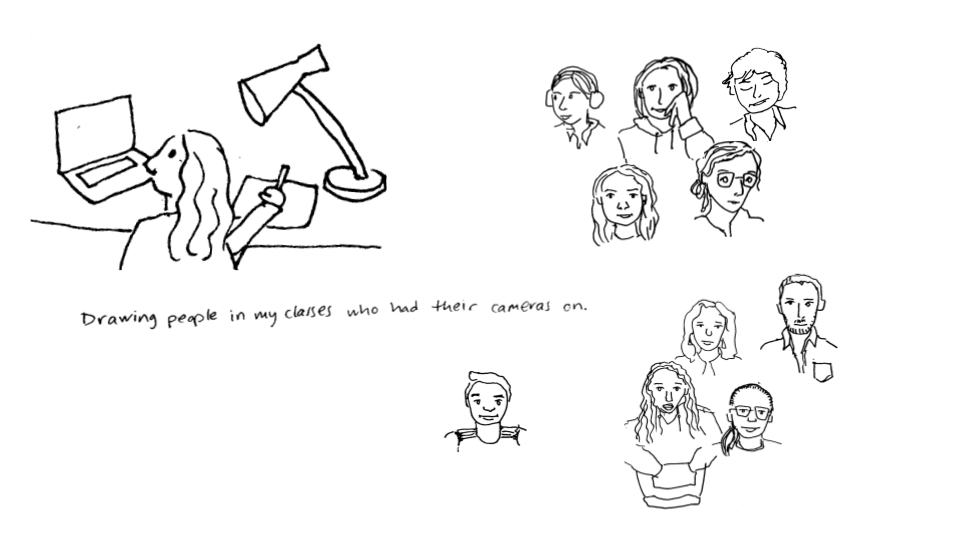 Drawing people in my classes who had their cameras on.